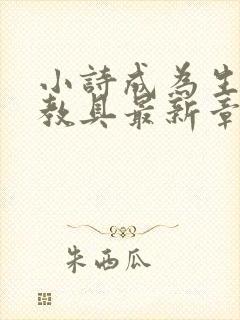 小詩成為生
教具最新章
朱西瓜